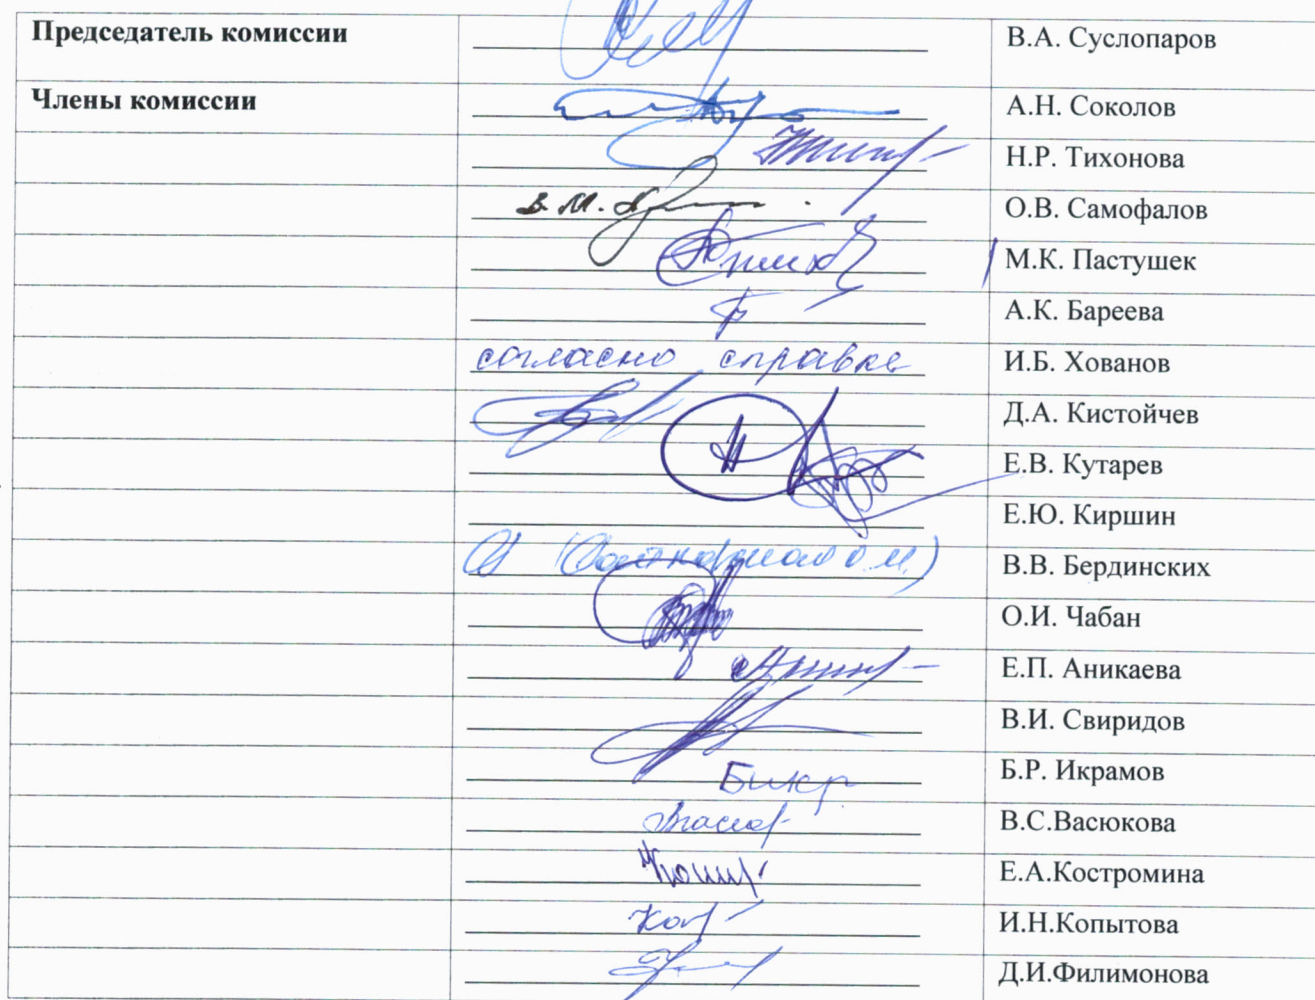 Председатель комиссии В.А. Суслопаров
Члены комиссии А.Н. Соколов
Н.Р. Тихонова
О.В. Самофалов
М.К. Пастушек
А.К. Бареева
согласно справке И.Б. Хованов
Д.А. Кистойчев
Е.В. Кутарев
Е.Ю. Киршин
В.В. Бердинских
О.И. Чабан
Е.П. Аникаева
В.И. Свиридов
Б.Р. Икрамов
В.С.Васюкова
Е.А.Костромина
И.Н.Копытова
Д.И.Филимонова